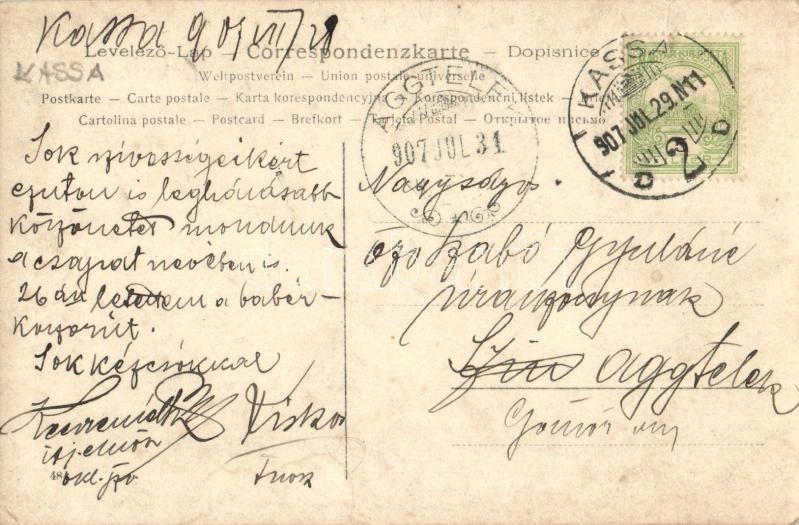 Kassa 907 VII/29
KASSA
Levelező-Lap — Correspondenzkarte — Dopisnice
Weltpostverein — Union postale universelle
Postkarte — Carte postale — Karta korespondencyjna — Korespondenční lístek
Cartolina postale — Postcard — Brefkort — Tarjeta Postal — Открытое письмо
AGGTELEK
907 JUL 31
KASSA
907 JUL. 29. N11
D 2 D
Sok szívességeikért
ezuton is leghálásabb
köszönetet mondunk
a csapat nevében is.
26 án letettem a babér-
koszorút.
Sok kézcsókkal
Nagyságos
Szabó Gyuláné
úrasszonynak
Szin Aggtelek
Gömör m